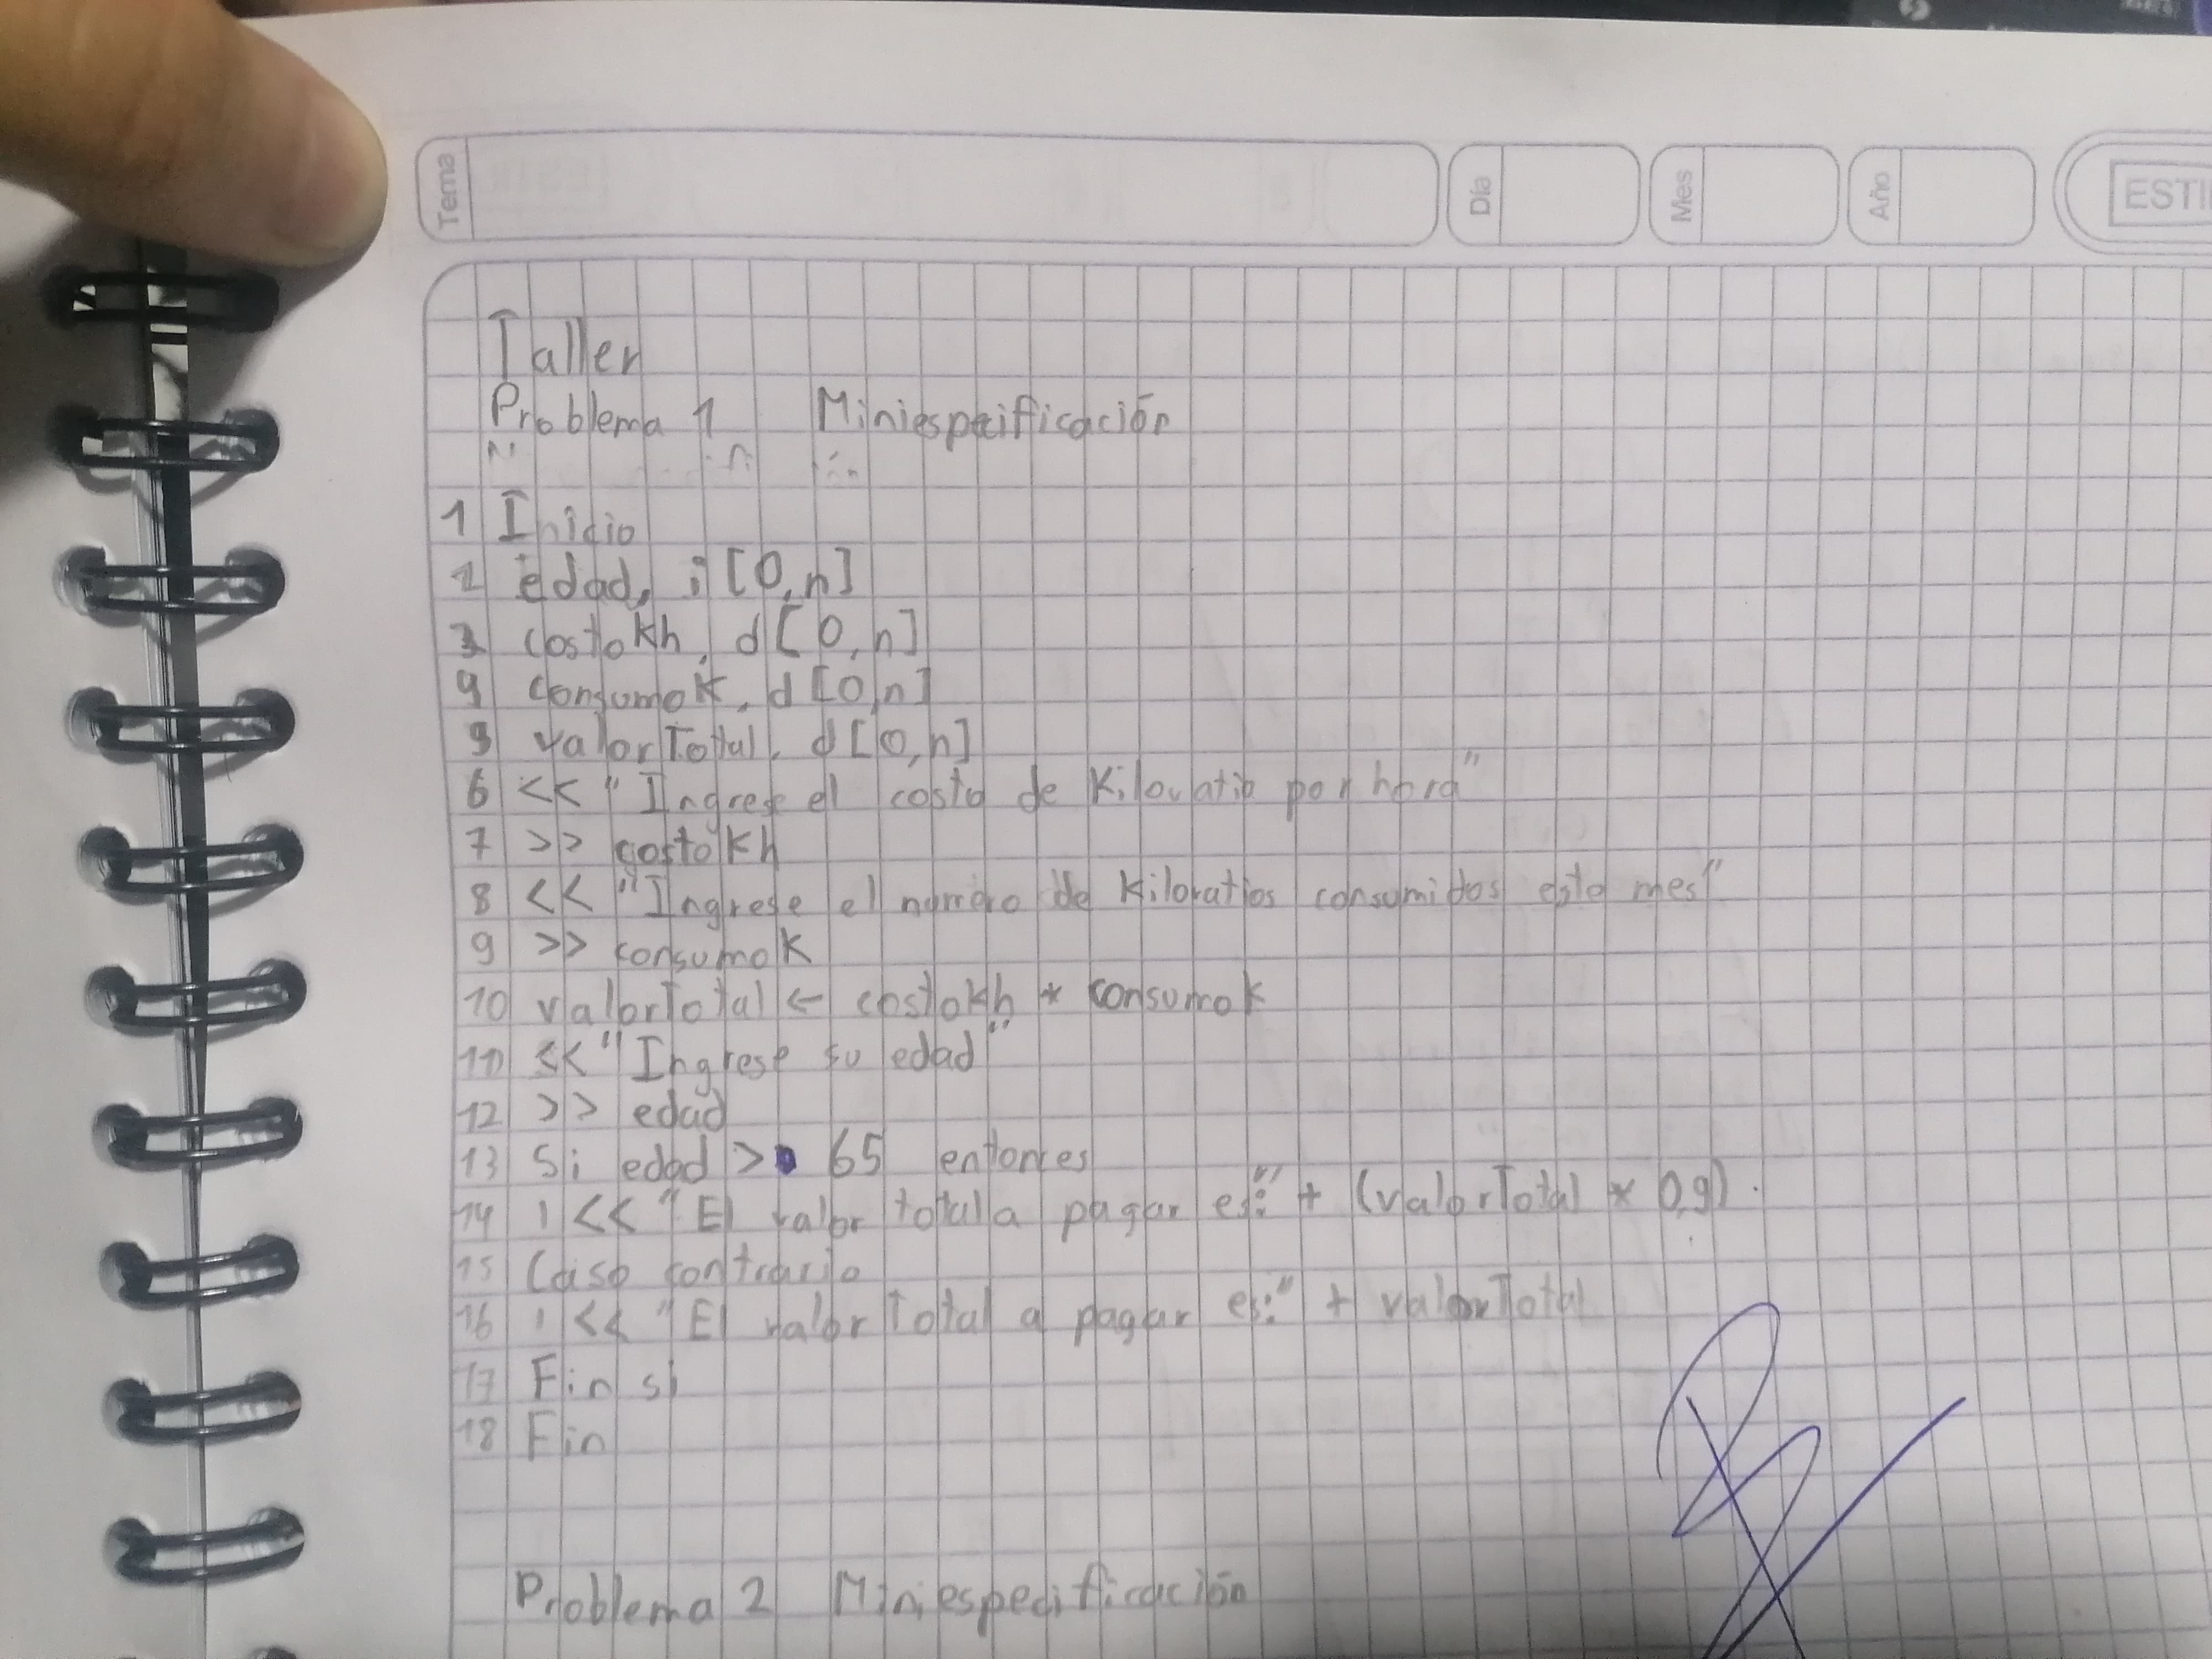 Tema Día Mes Año ESTI
Taller
Problema 1 Miniespecificación
1 Inicio
2 edad, i [0,n]
3 costokh, d [0,n]
4 consumoK, d [0,n]
5 valorTotal, d [0,n]
6 << "Ingrese el costo de Kilovatio por hora"
7 >> costokh
8 << "Ingrese el numero de Kilovatios consumidos este mes"
9 >> consumoK
10 valorTotal ← costokh * consumoK
11 << "Ingrese su edad"
12 >> edad
13 Si edad > 65 entonces
14 | << "El valor total a pagar es:" + (valorTotal * 0,9).
15 Caso contrario
16 | << "El valor Total a pagar es:" + valorTotal
17 Fin si
18 Fin
Problema 2 Miniespecificación